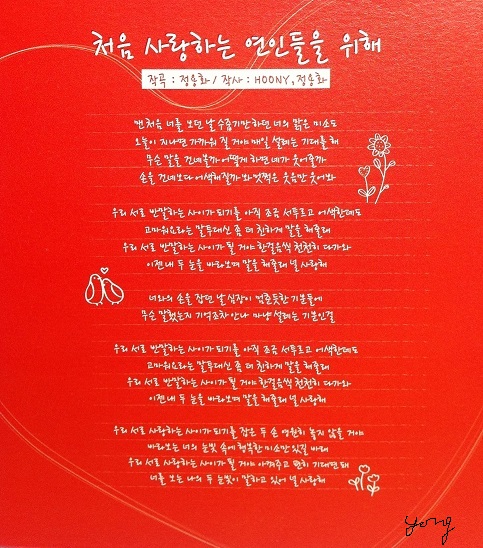 처음 사랑하는 연인들을 위해
작곡 : 정용화 / 작사 : HOONY, 정용화
맨 처음 너를 보던 날 수줍기만 하던 너의 맑은 미소도
오늘이 지나면 가까워 질 거야 매일 설레는 기대를 해
무슨 말을 건네볼까 어떻게 하면 네가 웃어줄까
손을 건네보다 어색해질까봐 멋쩍은 웃음만 웃어봐
우리 서로 반말하는 사이가 되기를 아직 조금 서투르고 어색한데도
고마워요라는 말투대신 좀 더 친하게 말을 해줄래
우리 서로 반말하는 사이가 될 거야 한걸음씩 천천히 다가와
이젠 내 두 눈을 바라보며 말을 해줄래 널 사랑해
너와의 손을 잡던 날 심장이 멈춘듯한 기분들에
무슨 말했는지 기억조차 안나 마냥 설레는 기분인걸
우리 서로 반말하는 사이가 되기를 아직 조금 서투르고 어색한데도
고마워요라는 말투대신 좀 더 친하게 말을 해줄래
우리 서로 반말하는 사이가 될 거야 한걸음씩 천천히 다가와
이젠 내 두 눈을 바라보며 말을 해줄래 널 사랑해
우리 서로 사랑하는 사이가 되기를 잡은 두 손 영원히 놓지 않을 거야
바라보는 너의 눈빛 속에 행복한 미소만 있길 바래
우리 서로 사랑하는 사이가 될 거야 아껴주고 편히 기대면 돼
너를 보는 나의 두 눈빛이 말하고 있어 널 사랑해
yong